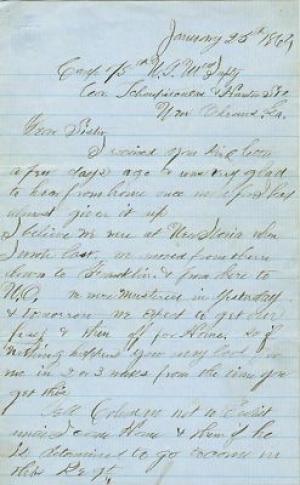 January 25th 186
Camp 75th U.S.
Cor
New Orleans La.
Dear Sister
I received you
a few days ago & was very glad
to hear from home once more for I had
almost given it up
I believe we were at New Iberia when
I wrote last. we moved from there
down to Franklin & from there to
N.O. we were mustered in yesterday
& tomorrow we expect to get our
pay & then off for Home, so if
nothing happens you may look for
me in 2 or 3 weeks from the time you
get this
Tell not to Enlist
until I come Home & then if he
is determined to go to come in
this Regt.